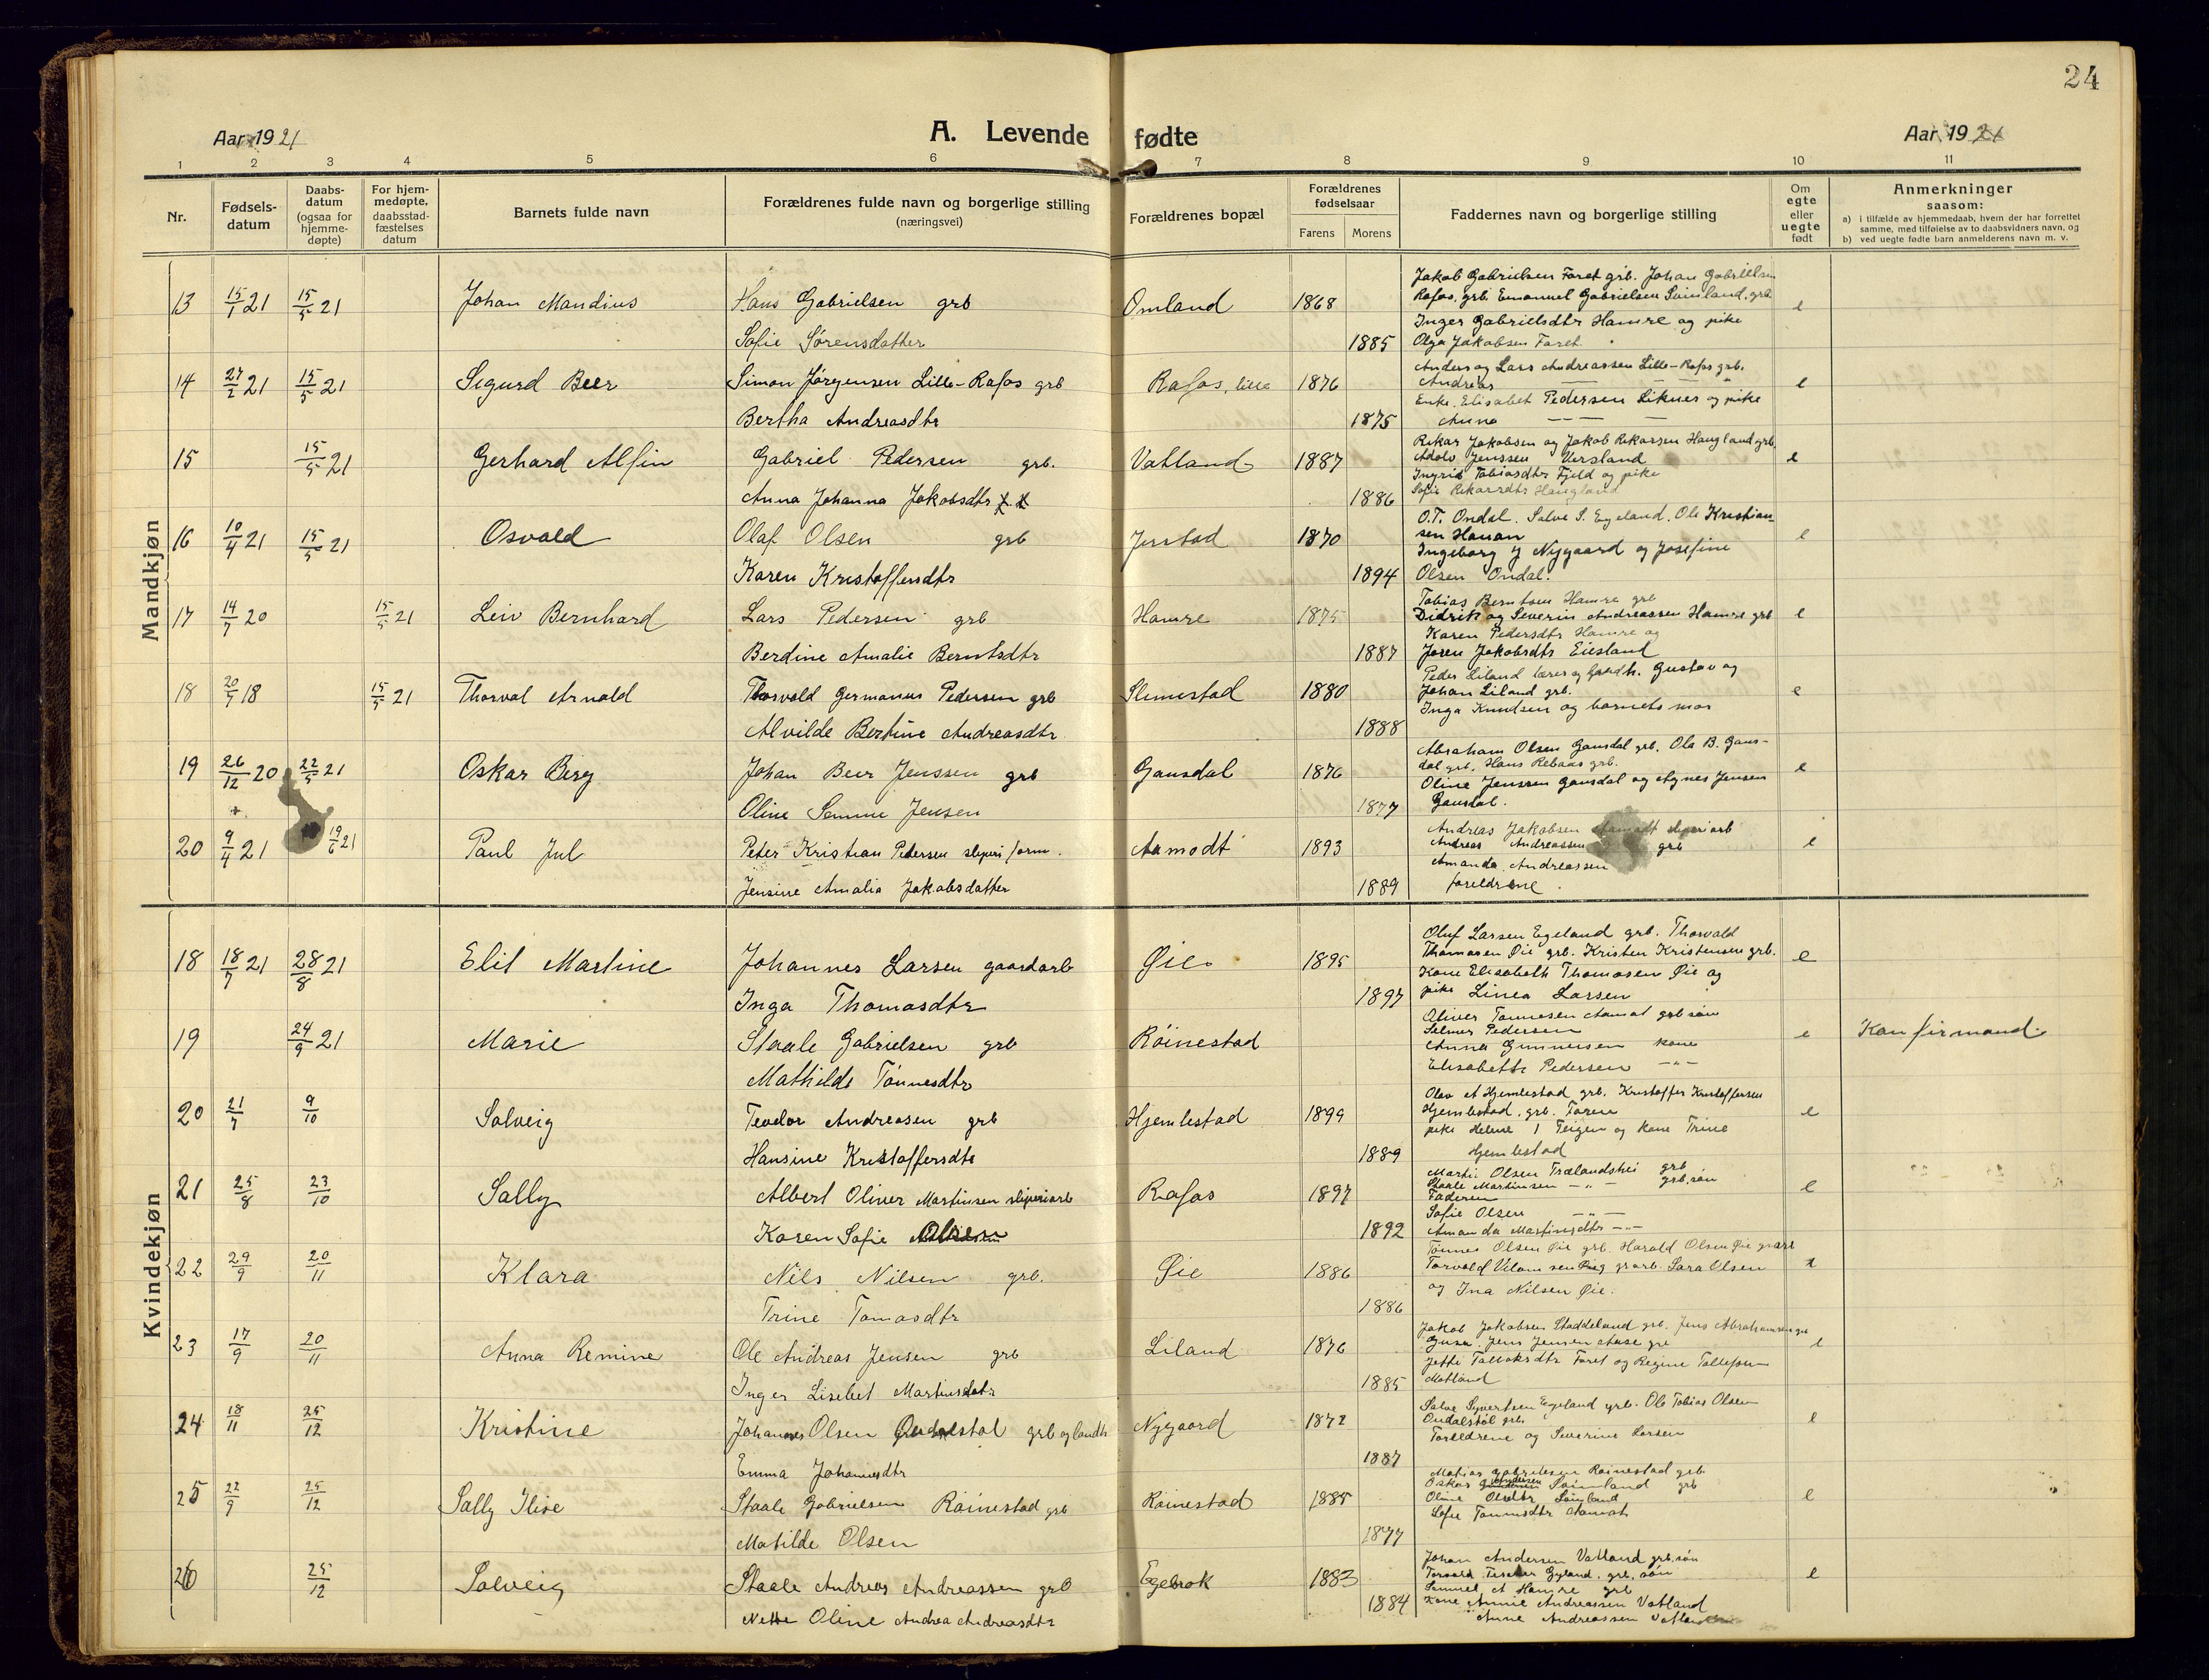 24
Aar 1921
A. Levende fødte
Aar 1921
1 2 3 4 5 6 7 8 9 10 11
Nr.
Fødsels-
datum
Daabs-
datum
(ogsaa for
hjemme-
døpte)
For hjem-
medøpte,
daabsstad-
fæstelses
datum
Barnets fulde navn
Forældrenes fulde navn og borgerlige stilling
(næringsvei)
Forældrenes bopæl
Forældrenes
fødselsaar
Farens Morens
Faddernes navn og borgerlige stilling
Om
egte
eller
uegte
født
Anmerkninger
saasom:
a) i tilfælde av hjemmedaab, hvem der har forrettet
samme, med tilføielse av to daabsvidners navn, og
b) ved uegte fødte barn anmelderens navn m. v.
Mandkjøn
13 15/1 21 15/5 21 Johan Mandius Hans Gabrielsen grb Omland 1868 e
Sofie Sørensdatter 1885
Jakob Gabrielsen Faret grb. Johan Gabrielsen
Rafos, grb. Emanuel Gabrielsen Svinland, grb
Inger Gabrielsdtr Hamre og pike
Olga Jakobsen Faret.
14 27/2 21 15/5 21 Sigurd Beer Simon Jørgensen Lille-Rafos grb Rafos, lille 1876 e
Bertha Andreasdtr 1875
Anders og Lars Andreassen Lille-Rafos grb.
Andreas — — —
Enke Elisabet Pedersen Liknes og pike
Anna — —
15 15/5 21 Gerhard Alfin Gabriel Pedersen grb. Vatland 1887 e
Anna Johanna Jakobsdtr 1886
Rikar Jakobsen og Jakob Rikarsen Haugland grb.
Adolv Jenssen Versland
Ingrid Tobiasdtr Fjeld og pike
Sofie Rikarsdtr Haugland
16 10/4 21 15/5 21 Osvald Olaf Olsen grb Jerstad 1870 e
Karen Kristoffersdtr 1894
O.T. Ondal. Salve S. Egeland. Ole Kristian-
sen Hauan
Ingeborg J Nygaard og Josefine
Olsen Ondal.
17 14/7 20 15/5 21 Leiv Bernhard Lars Pedersen grb Hamre 1875 e
Berdine Amalie Berntsdtr 1887
Tobias Berntsen Hamre grb
Didrik og Severin Andreassen Hamre grb
Karen Pedersdtr Hamre og
Joren Jakobsdtr Eiesland
18 20/7 18 15/5 21 Thorval Arnold Thorvold Germanus Pedersen grb Slimestad 1880 e
Alvilde Bertine Andreasdtr 1888
Peder Liland lærer og Gaardb. Gustav og
Johan Liland grb.
Inga Knudsen og barnets mor
19 26/12 20 22/5 21 Oskar Birg Johan Beer Jenssen grb Gausdal 1876 e
Oline Semine Jensen 1877
Abraham Olsen Gausdal grb. Ole B. Gaus-
dal grb. Hans Rebaas grb.
Oline Jenssen Gausdal og Agnes Jensen
Gausdal.
20 9/4 21 19/6 21 Paul Jul Peter Kristian Pedersen sliperi form. Aamodt 1893 e
Jensine Amalia Jakobsdatter 1889
Andreas Jakobsen Aamodt sliperiarb
Andreas Andreassen grb
Amanda Andreassen
foreldrene.
Kvindekjøn
18 18/7 21 28/8 21 Elit Martine Johannes Larsen gaardarb Øie 1895 e
Inga Thomasdtr 1897
Oluf Larsen Egeland grb. Thorvald
Thomasen Øie grb. Kristen Kristensen grb.
Kone Elisabeth Thomasen Øie og
pike Linea Larsen
19 24/9 21 Marie Staale Gabrielsen grb Röinestad e Konfirmand
Mathilde Tönnesdtr
Oliver Tønnesen Aamot grb søn
Selmer Pedersen
Anna Gunnusen kone
Elisabeth Pedersen —"—
20 21/7 9/10 Solveig Teodor Andreasen grb Hjemlestad 1899 e
Hansine Kristoffersdtr 1889
Olav A Hjemlestad grb. Kristoffer Kristoffersen
Hjemlestad. grb. Tonen
pike Helene J Teigen og kone Trine
Hjemlestad
21 25/8 23/10 Sally Albert Oliver Martinsen sliperiarb Rafos 1897 e
Karen Sofie Olsen 1892
Martin Olsen Trælandshei grb
Staale Martinsen —"— grb. søn
Faderen
Sofie Olsen —"—
Amanda Martinsdtr —"—
22 29/9 20/11 Klara Nils Nilsen grb. Øie 1886
Trine Tomasdtr 1886
Tönnes Olsen Øie grb. Harald Olsen Øie
Torvald grarb. Sara Olsen
og Ina Nilsen Øie.
23 17/9 20/11 Anna Remine Ole Andreas Jensen grb Liland 1876 e
Inger Lisebet Martinsdatr 1885
Jakob Jakobsen Staddeland grb. Jens Abrahamsen
Jens Jensen Aase grb
Jette Tallaksdtr Faret og Regine Tallefsen
Motland
24 18/11 25/12 Kristine Johannes Olsen grb og landh Nygaard 1872 e
Emma Johannesdtr 1887
Salve Syvertsen Egeland grb. Ole Tobias Olsen
Ondalstöl grb.
Foreldrene og Severine Larsen
25 22/9 25/12 Sally Ilise Staale Gabrielsen Röinestad grb Röinestad 1885 e
Matilde Olsen 1877
Matias Gabrielsen Röinestad grb.
Oskar Andersen Sömland grb
Oline Olsdtr Sömland
Sofie Tönnesdtr Aamot
26 25/12 Solveig Staale Andreas Andreassen grb Egebrok 1883 e
Nette Oline Andrea Andreasdtr 1884
Johan Andersen Vatland grb. søn
Torvald Fischer Gyland. grb. søn
Samuel A Hamre grb
Kone Annie Andreassen Vatland
Anne Andreassen Vatland